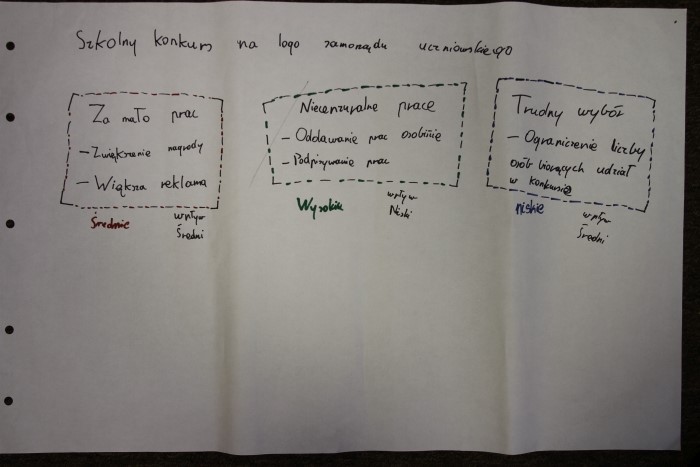 Szkolny konkurs na logo samorządu uczniowskiego
Za mało prac
- Zwiększenie nagrody
- Większa reklama
Średnie
wpływ
Średni
Niecenzuralne prace
- Oddawanie prac osobiście
- Podpisywanie prac
Wysokie
wpływ
Niski
Trudny wybór
- Ograniczenie liczby
osób biorących udział
w konkursie
niskie
wpływ
Średni